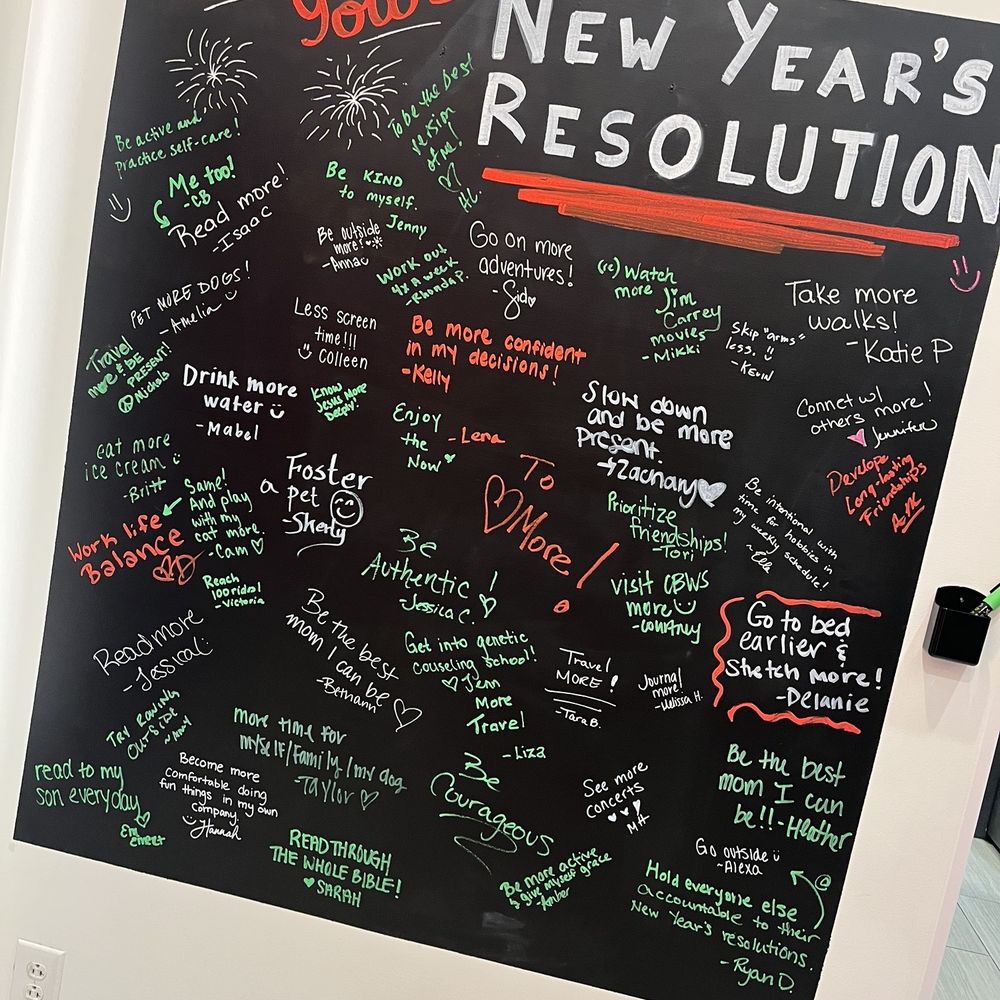 Your
NEW YEAR'S
RESOLUTION
Be active and
Practice self-care!
Me too!
-CB
Read more!
-Isaac
Be KIND
to myself.
Jenny
To be the best
version
of me!
Be outside
more!
-Anna
Work out
4x a week
-Rhonda P.
Go on more
adventures!
-Sid
(re) Watch
more Jim
Carrey
movies
-Mikki
Skip "arms"
less.
-Kevin
Take more
walks!
-Katie P
PET MORE DOGS!
-Amelia
Less screen
time!!!
Colleen
Be more confident
in my decisions!
-Kelly
Travel
more & BE
PRESENT!
Drink more
water
-Mabel
Know
Jesus More
Deeply!
Enjoy
the
Now
-Lena
Slow down
and be more
present
Zachary
Connet w/
others more!
Jennifer
Develope
Long-lasting
Friendships
eat more
ice cream
-Britt
Same!
And play
with my
cat more.
-Cam
Foster
a pet
To
More!
Prioritize
friendships!
-Tori
Be intentional with
time for hobbies in
my weekly schedule!
-Elle
Work life
Balance
Reach
100 rides!
-Victoria
Be
Authentic!
-Jessica C.
visit CBWS
more
-Courtney
Go to bed
earlier &
stretch more!
-Delanie
Read more
-Jessica
Be the best
mom I can be
-Bethann
Get into genetic
couseling school!
Jenn
Travel
MORE!
-Tara B.
Journal
more!
-Melissa H.
More
Travel
-Liza
Try Rowing
Outside
more time for
myself/Family/my dog
-Taylor
read to my
son everyday
Become more
comfortable doing
fun things in my own
company
-Hannah
Be
Courageous
See more
concerts
Be the best
mom I can
be!!-Heather
READ THROUGH
THE WHOLE BIBLE!
SARAH
Be more active
& give myself grace
-Amber
Go outside
~Alexa
Hold everyone else
accountable to their
New Year's resolutions.
-Ryan D.